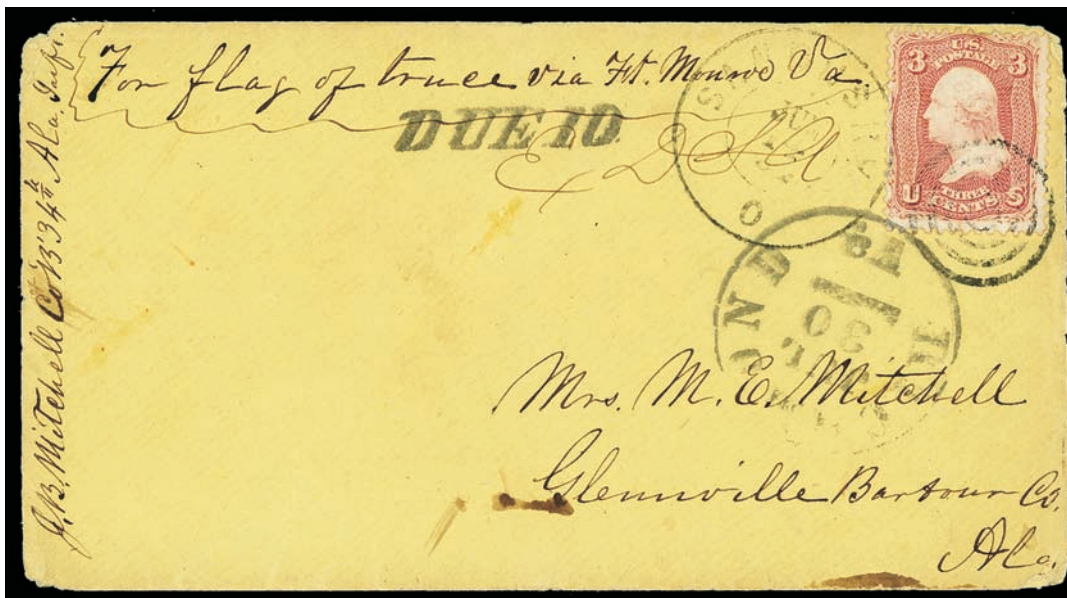 J. B. Mitchell Co B 34th Ala. Inft.
For flag of truce via Ft. Monroe Va.
DUE 10
U.S.
POSTAGE
3 3
THREE
CENTS
U S
SA
O
JUL
30
Mrs. M. E. Mitchell
Glennville Barbour Co.
Ala.